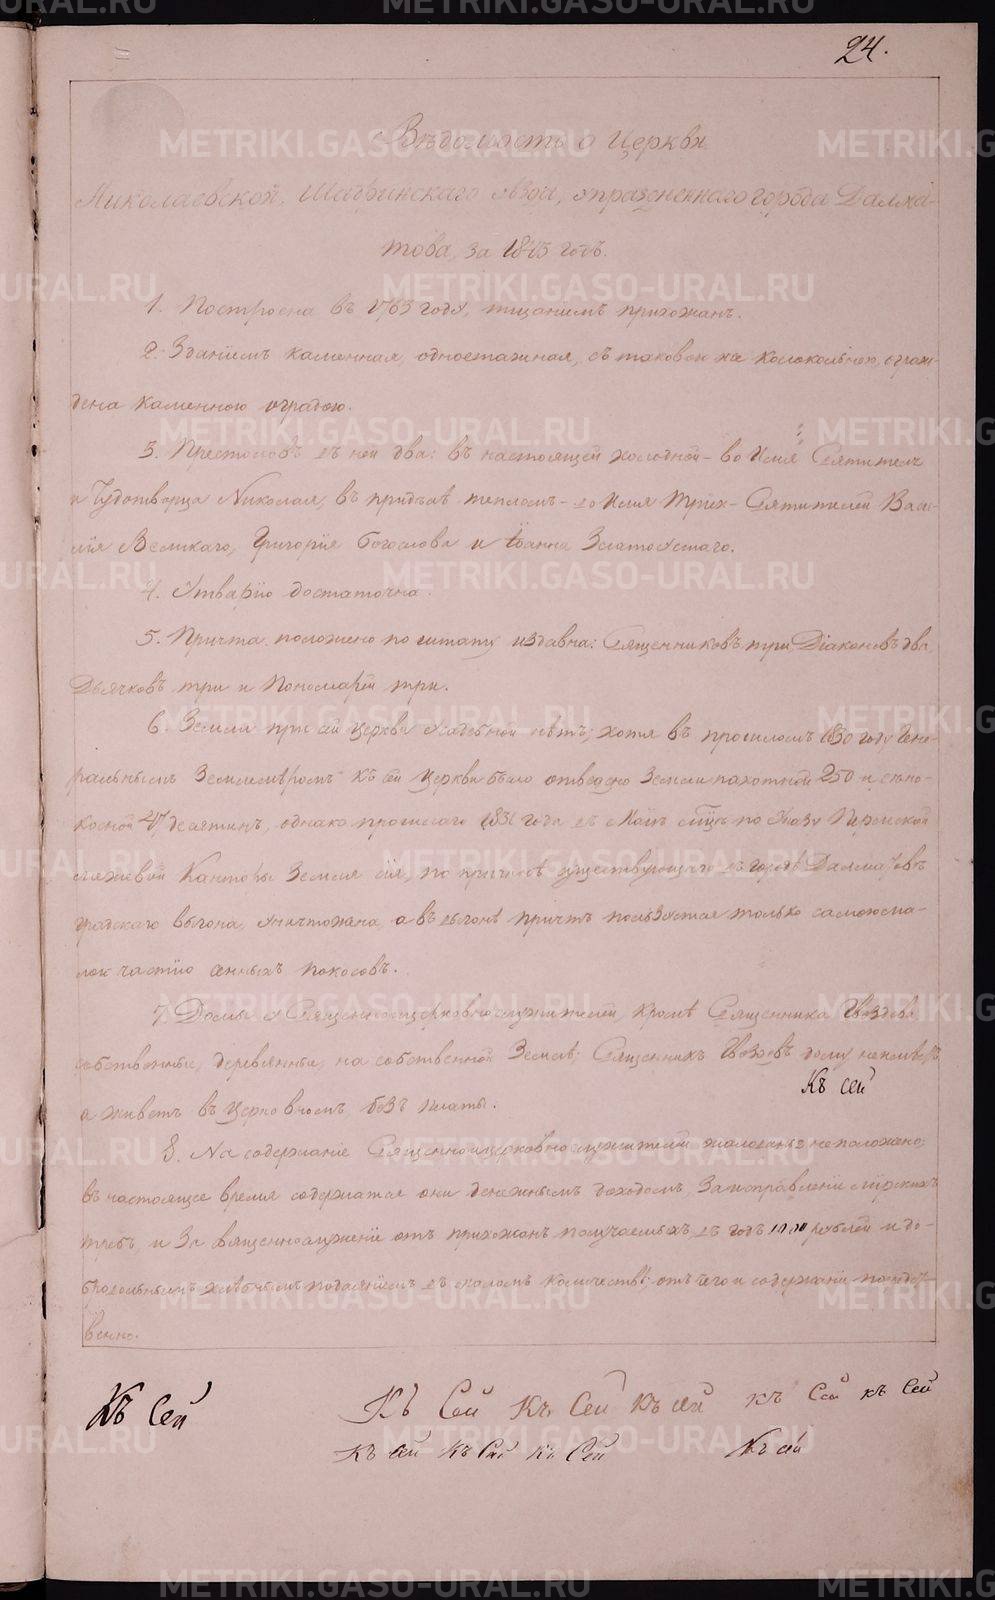 24.
Вѣдомость о Церкви
Николаевской, Шадринскаго уѣзда, упраздненнаго города Далма-
това, за 1843 годъ.
1. Построена въ 1763 году, тщаніемъ прихожанъ.
2. Зданіемъ каменная, одноэтажная, съ таковою же колокольнею, ограж-
дена каменною оградою.
3. Престоловъ въ ней два: въ настоящей холодной – во Имя Святителя
и Чудотворца Николая, въ придѣлѣ тепломъ – во Имя Трех – Святителей Васи-
лія Великаго, Григорія Богослова и Іоанна Златоустаго.
4. Утварію достаточна.
5. Причта положено по штату издавна: Священниковъ три, Діаконовъ два,
Дьячковъ три и Пономарей три.
6. Земли при сей церкви усадебной нѣтъ; хотя въ прошломъ 1830 году Гене-
ральнымъ Землемѣромъ къ сей церкви было отведено Земли пахотной 250 и сѣно-
косной 47 десятинъ, однако прошлаго 1831 года въ Маѣ мцѣ по Указу Пермской
межевой Канторы Земля сія, по причинѣ существующаго въ городѣ Далматовѣ
градскаго выгона, уничтожена, а въ выгонѣ причтъ пользуется только самою ма-
лою частію сѣнныхъ покосовъ.
7. Домы у Священноцерковнослужителей, кромѣ Священника Гвоздева
собственные, деревянные, на собственной Землѣ; Священникъ Гвоздевъ дому не имѣетъ,
Къ сей
а живетъ въ церковномъ, безъ платы.
8. На содержаніе Священноцерковнослужителей жалованья не положено;
въ настоящее время содержатся они денежнымъ доходомъ, За исправленіе мірскихъ
требъ, и За священнослуженіе отъ прихожанъ получаемыхъ въ годъ рублей и до-
бровольнымъ хлѣбнымъ подаяніемъ въ маломъ количествѣ; отъ чего и содержаніе посредст-
венно.
Къ Сей Къ Сей Къ Сей Къ сей Къ Сей къ Сей
Къ сей Къ Сей Къ Сей Къ сей
METRIKI.GASO-URAL.RU